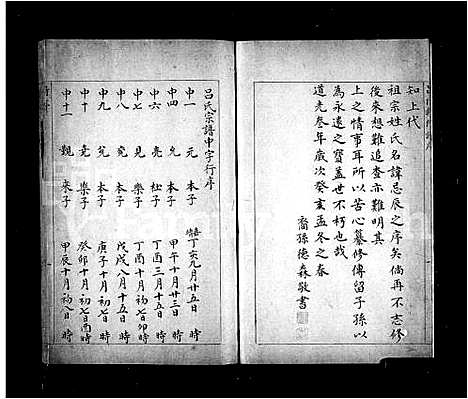 知上代
祖宗姓氏名諱忌辰之序矣倘再不志修
後來想難追查亦難明其
上之情事耳所以苦心纂修傳留子孫以
為永遠之寶蓋世不朽也哉
道光叁年歲次癸亥孟冬之春
裔孫德森敬書
呂氏宗譜申字行序
申一 元 本子 丁亥九月廿五日 時
申四 允 本子 甲午十月廿三日 時
申六 亮 杜子 丁酉三月十五日 時
申七 見 樂子 丁酉十月初七日卯時
申八 免 本子 戊戌八月十五日 時
申九 堯 本子 庚子十月初七日 時
申十 克 樂子 癸卯十月初七日酉時
申十一 觀 來子 甲辰十月初八日 時